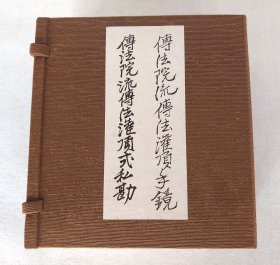 傳法院流傳法灌頂手鏡
傳法院流傳法灌頂式私勘